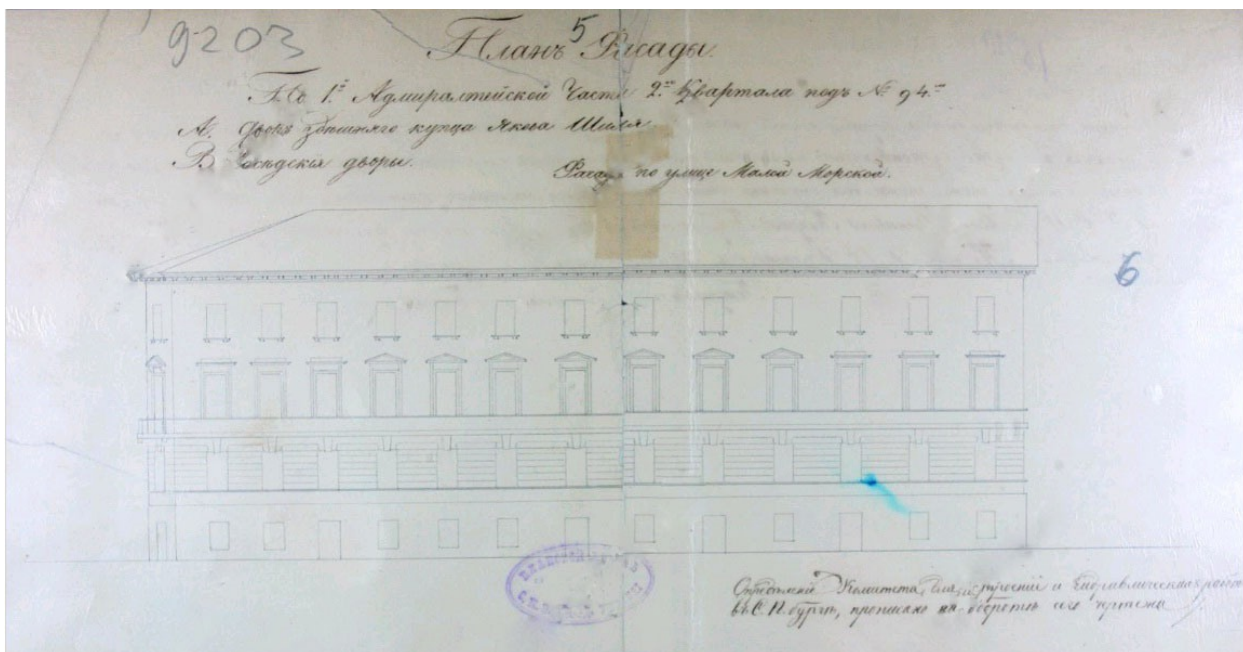 9203
5
Планъ Фасады.
1.й Адмиралтейской Части 2.го Квартала подъ № 94.мъ
А. дворъ здѣшняго купца Якова
В сосѣдскія дворы.
Фаса по улице Малой Морской.
6
Комитета, для строеній и Гидравлическихъ работъ
въ С. П. бургѣ, прописано на оборотѣ сего чертежа